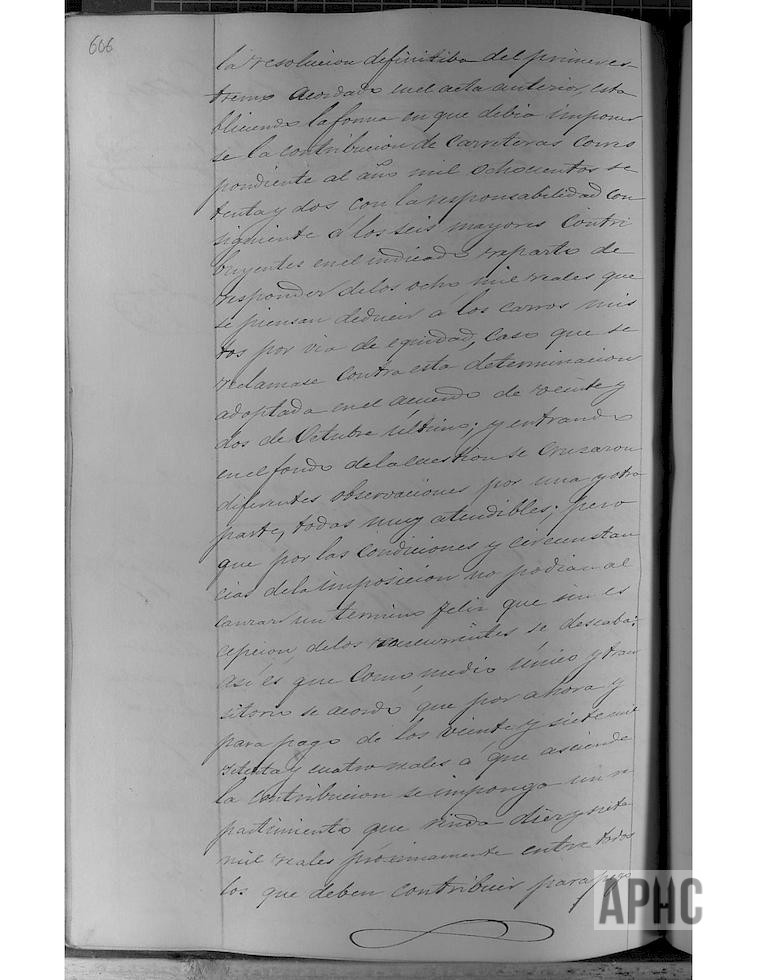 606
la resolucion definitiba del primer es
tremo acordado en el acta anterior, esta
bleciendo la forma en que debia imponer
se la contribucion de Carreteras corres
pondiente al año mil ochocientos se
tenta y dos con la responsabilidad con
siguiente a los seis mayores contri
buyentes en el indicado reparto de
responder de los ocho mil reales que
se piensan deducir á los carros mis
tos por via de equidad, caso que se
reclamase contra esta determinacion
adoptada en el acuerdo de veinte y
dos de Octubre último; y entrando
en el fondo de la cuestion se cruzaron
diferentes observaciones por una y otra
parte, todas muy atendibles; pero
que por las condiciones y circunstan
cias de la imposicion no podian al
canzar un termino feliz que sin es
cepcion de los concurrentes se deseaba;
asi es que como medio único y tran
sitorio se acordó que por ahora y
para pago de los veinte y siete mil
y cuatro reales a que asciende
la contribucion se imponga un re
partimiento que rinda diez y siete
mil reales próximamente entre todos
los que deben contribuir para
APHC